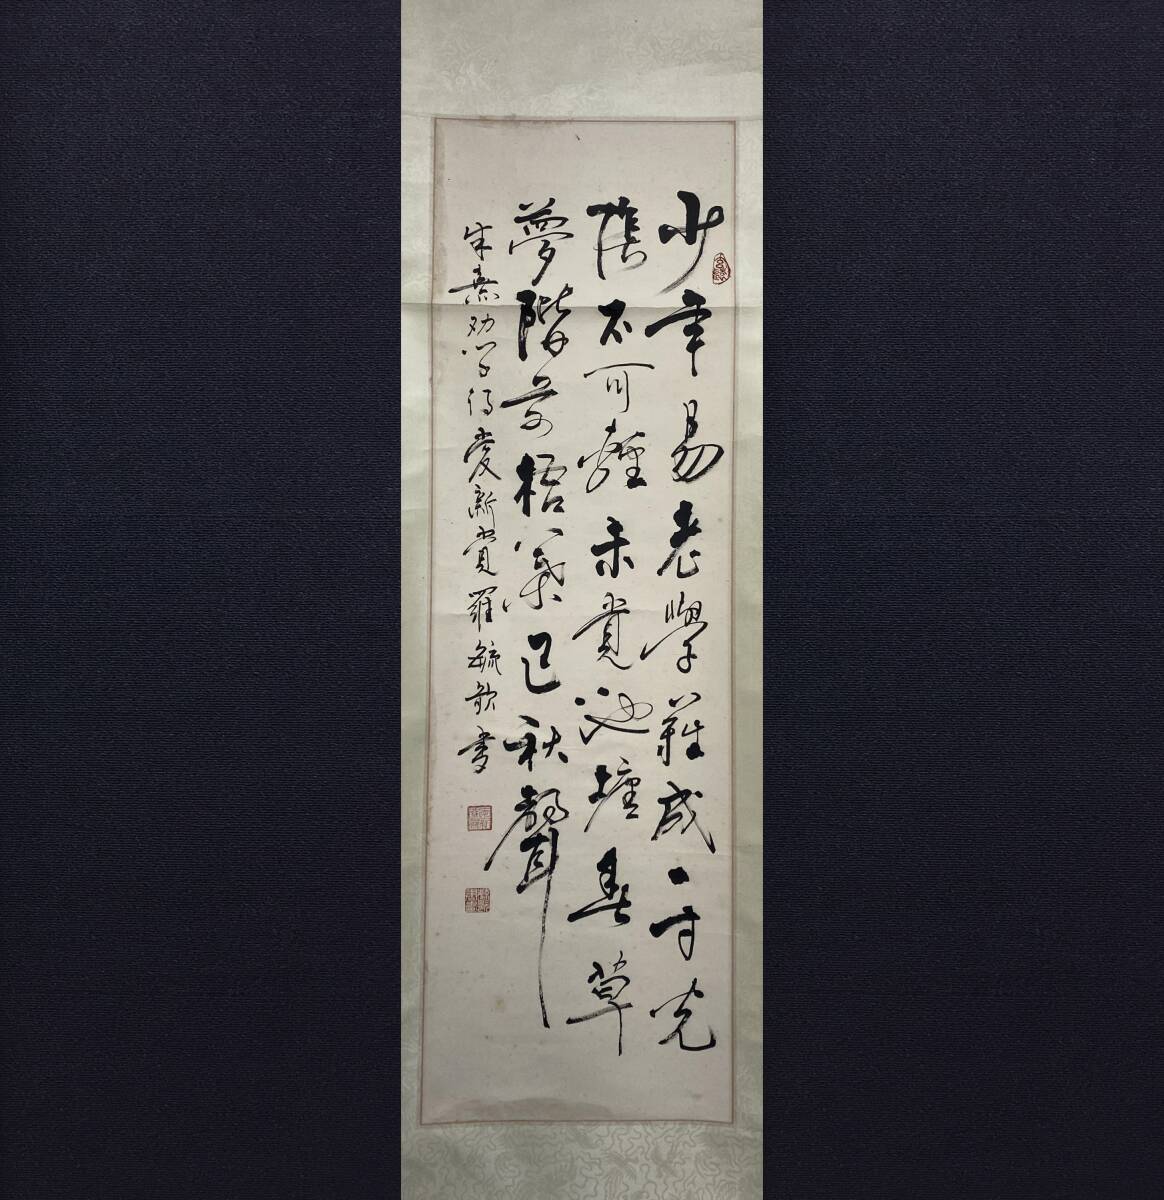 少年易老學難成一寸光
陰不可輕未覺池塘春草
夢階前梧葉已秋聲
朱熹劝学得爱新覺羅毓歆书